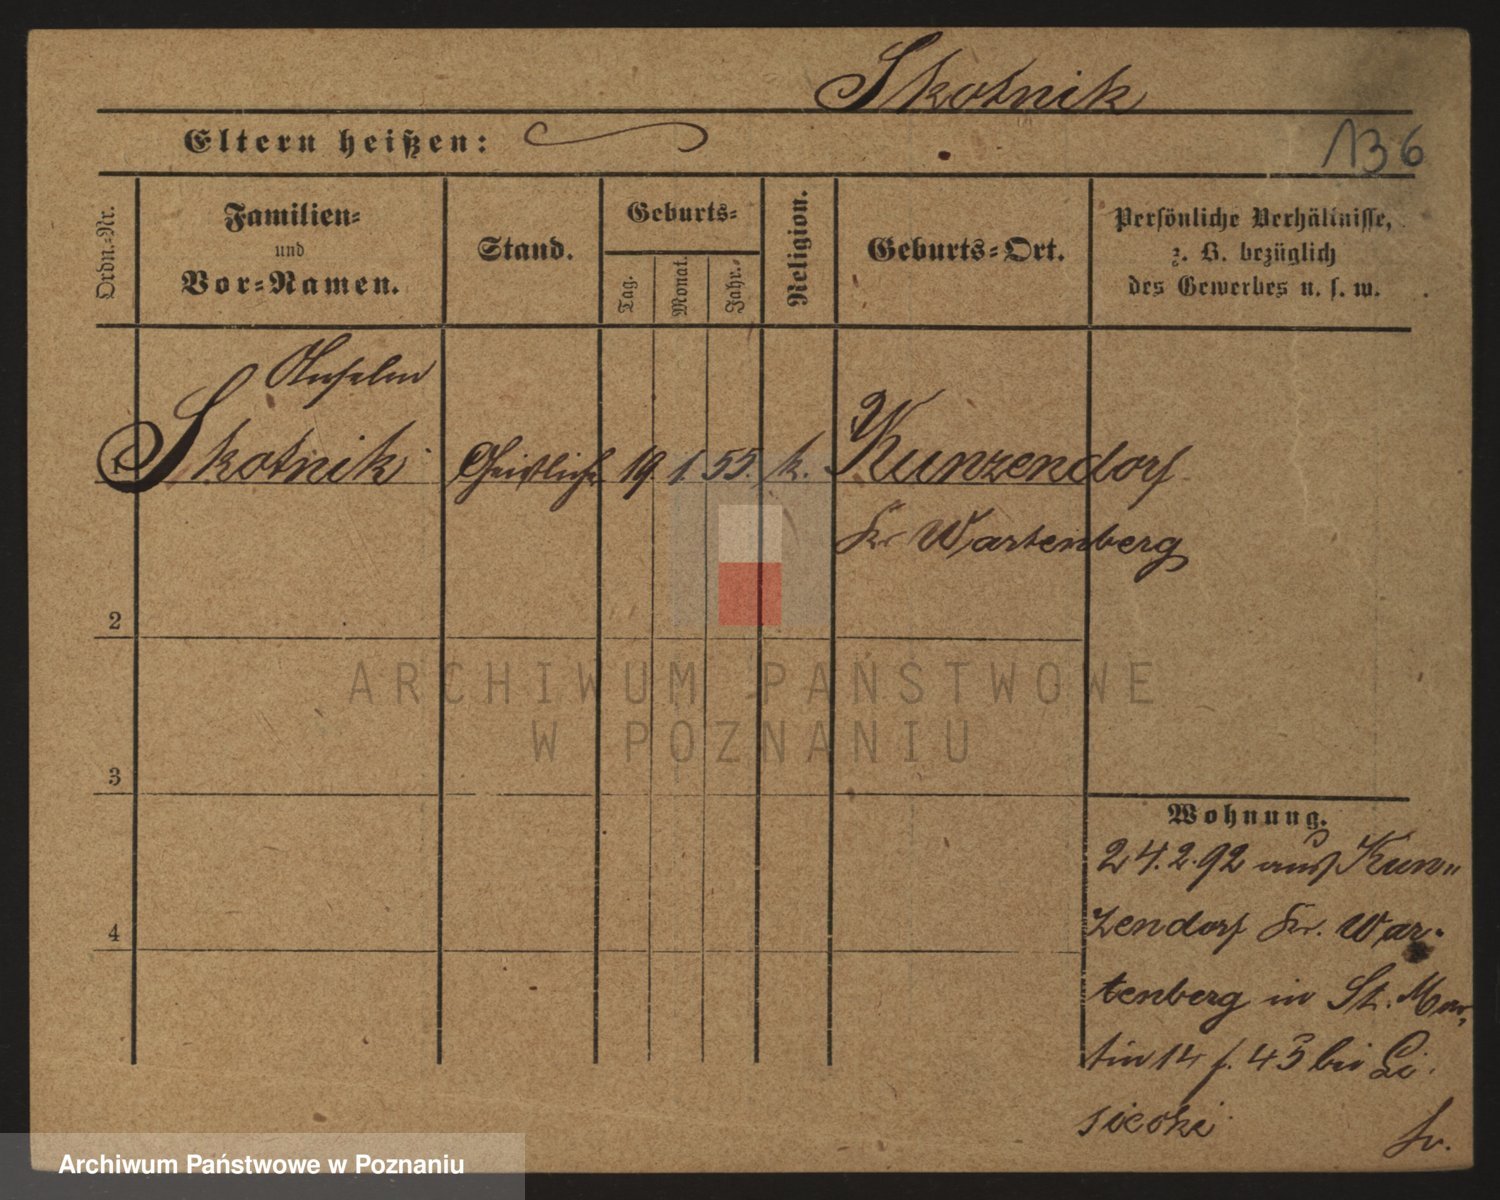 Skotnik
Eltern heißen:
136
Ordn.-Nr.
Familien-
und
Vor-Namen.
Stand.
Geburts-
Tag.
Monat.
Jahr.
Religion.
Geburts-Ort.
Persönliche Verhältnisse,
z. B. bezüglich
des Gewerbes u. s. w.
Anselm
1 Skotnik Geistlicher 19. 1. 55. k. Kunzendorf
Kr Wartenberg
2
3
4
Wohnung.
24.2.92 aus Kun-
zendorf Kr. War-
tenberg in St. Mar-
tin 14 f. 43 bei Li-
siecki
ARCHIWUM PAŃSTWOWE
W POZNANIU
Archiwum Państwowe w Poznaniu